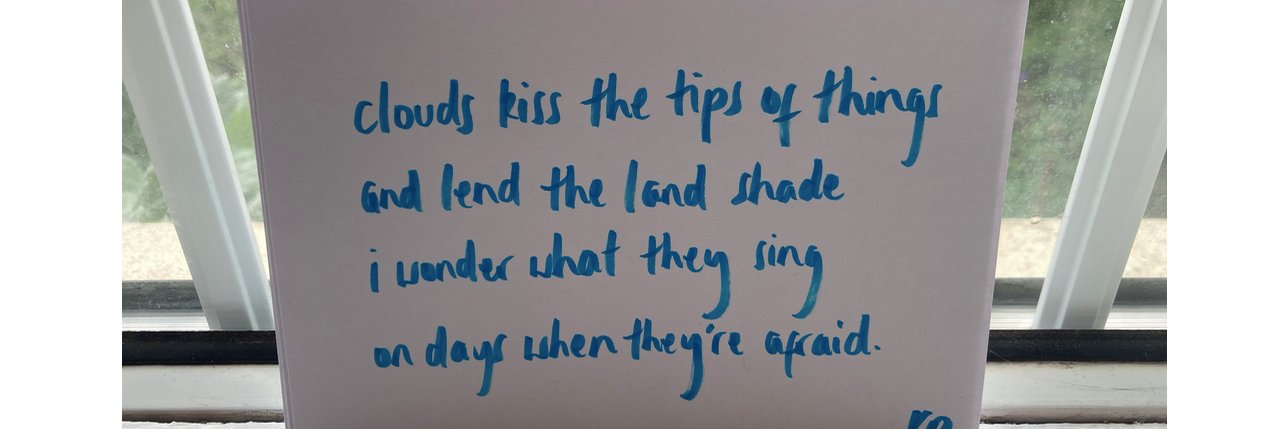 clouds kiss the tips of things
and lend the land shade
i wonder what they sing
on days when they're afraid.